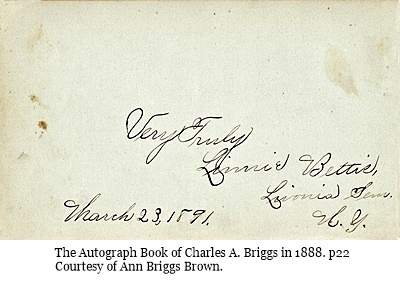 Very Truly
Linnie Bettis,
Livonia Sem.
N. Y.
March 23, 1891.
The Autograph Book of Charles A. Briggs in 1888. p22
Courtesy of Ann Briggs Brown.